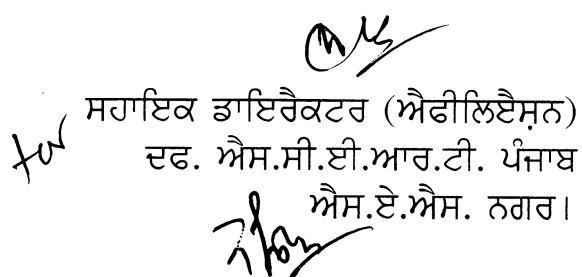 ਸਹਾਇਕ ਡਾਇਰੈਕਟਰ (ਐਫੀਲਿਏਸ਼ਨ)
for ਦਫ. ਐਸ.ਸੀ.ਈ.ਆਰ.ਟੀ. ਪੰਜਾਬ
ਐਸ.ਏ.ਐਸ. ਨਗਰ।